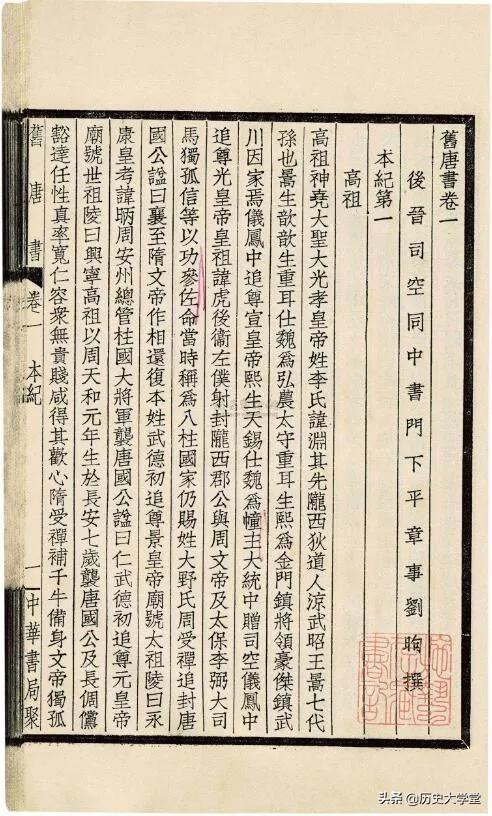 舊唐書卷一
後晉司空同中書門下平章事劉昫撰
本紀第一
高祖
高祖神堯大聖大光孝皇帝姓李氏諱淵其先隴西狄道人涼武昭王暠七代
孫也暠生歆歆生重耳仕魏爲弘農太守重耳生熙爲金門鎮將領豪傑鎮武
川因家焉儀鳳中追尊宣皇帝熙生天錫仕魏爲幢主大統中贈司空儀鳳中
追尊光皇帝皇祖諱虎後衞左僕射封隴西郡公與周文帝及太保李弼大司
馬獨孤信等以功參佐命當時稱爲八柱國家仍賜姓大野氏周受禪追封唐
國公諡曰襄至隋文帝作相還復本姓武德初追尊景皇帝廟號太祖陵曰永
康皇考諱昞周安州總管柱國大將軍襲唐國公諡曰仁武德初追尊元皇帝
廟號世祖陵曰興寧高祖以周天和元年生於長安七歲襲唐國公及長倜儻
豁達任性真率寬仁容衆無貴賤咸得其歡心隋受禪補千牛備身文帝獨孤
舊唐書 卷一 本紀 一 中華書局聚
头条 @历史大学堂